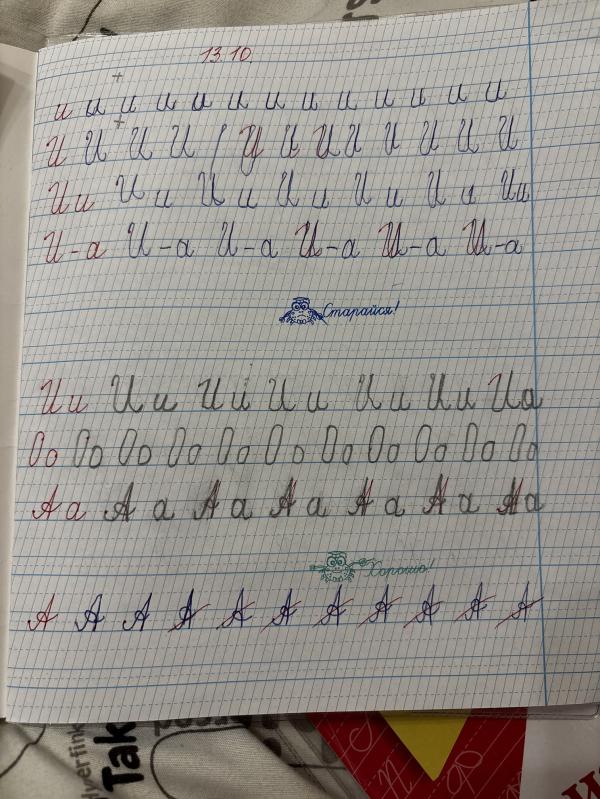 13.10.
и и и и и и и и и и и и и
И И И И И И И И И И И И
И и И и И и И и И и И и И и
И-а И-а И-а И-а И-а И-а
Старайся!
И и И и И и И и И и И и И а
О о О о О о О о О о О о О о О о О о О о О о
А а А а А а А а А а А а А а
Хорошо!
А А А А А А А А А А А
Tak